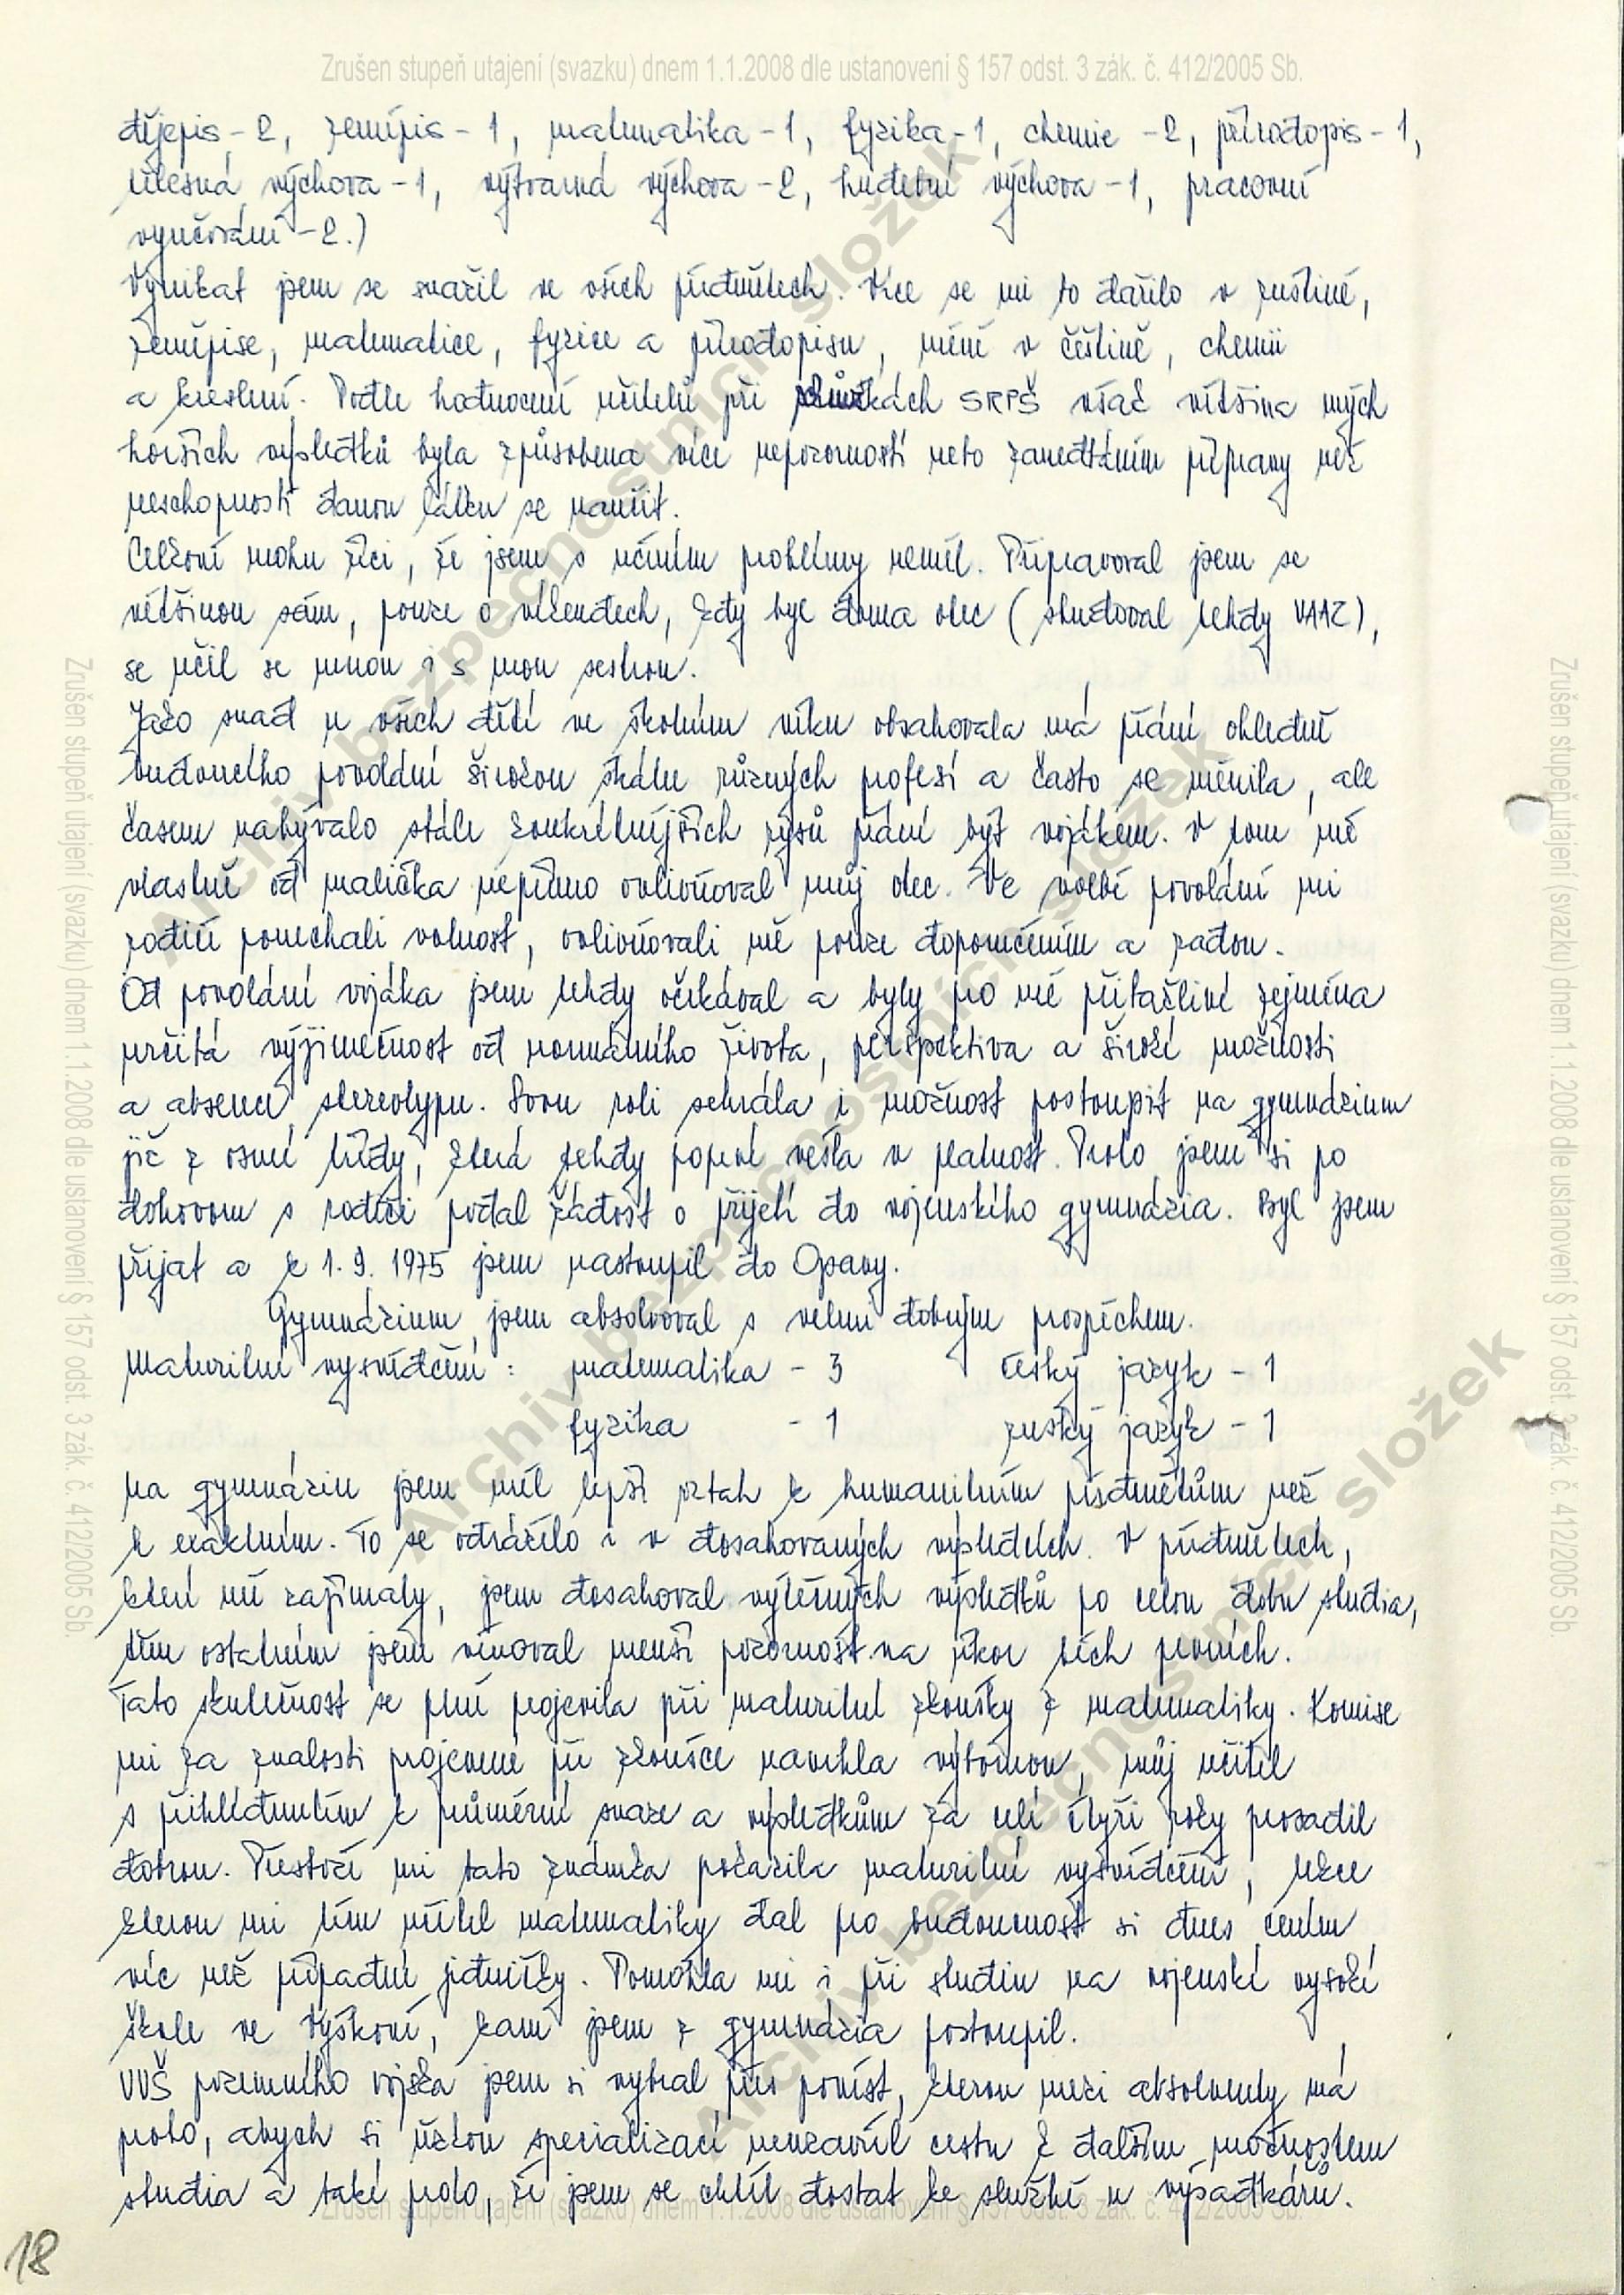 Zrušen stupeň utajení (svazku) dnem 1.1.2008 dle ustanovení § 157 odst. 3 zák. č. 412/2005 Sb.
dějepis - 2, zeměpis - 1, matematika - 1, fyzika - 1, chemie - 2, přírodopis - 1,
tělesná výchova - 1, výtvarná výchova - 2, hudební výchova - 1, pracovní
vyučování - 2.)
Vynikat jsem se snažil ve všech předmětech. Více se mi to dařilo v ruštině,
zeměpise, matematice, fyzice a přírodopisu, méně v češtině, chemii
a kreslení. Podle hodnocení učitelů při schůzkách SRPŠ však většina mých
horších výsledků byla způsobena více nepozorností nebo zanedbáním přípravy než
neschopností danou látku se naučit.
Celkově mohu říci, že jsem s učením problémy neměl. Připravoval jsem se
většinou sám, pouze o víkendech, kdy byl doma otec (studoval tehdy VAAZ),
se učil se mnou i s mou sestrou.
Jako snad u všech dětí ve školním věku obsahovala má přání ohledně
budoucího povolání širokou škálu různých profesí a často se měnila, ale
časem nabývalo stále konkrétnějších rysů přání být vojákem. V tom mě
vlastně od malička nepřímo ovlivňoval můj otec. Ve volbě povolání mi
rodiče ponechali volnost, ovlivňovali mě pouze doporučením a radou.
Od povolání vojáka jsem tehdy očekával a byly pro mě přitažlivé zejména
určitá výjimečnost od normálního života, perspektiva a široké možnosti
a absence stereotypu. Svou roli sehrála i možnost postoupit na gymnázium
již z osmé třídy, která tehdy poprvé vešla v platnost. Proto jsem si po
dohovoru s rodiči podal žádost o přijetí do vojenského gymnázia. Byl jsem
přijat a k 1. 9. 1975 jsem nastoupil do Opavy.
Gymnázium jsem absolvoval s velmi dobrým prospěchem.
Maturitní vysvědčení : matematika - 3 český jazyk - 1
fyzika - 1 ruský jazyk - 1
Na gymnáziu jsem měl lepší vztah k humanitním předmětům než
k exaktním. To se odráželo i v dosahovaných výsledcích. V předmětech,
které mě zajímaly, jsem dosahoval výtečných výsledků po celou dobu studia,
těm ostatním jsem věnoval menší pozornost na úkor těch prvních.
Tato skutečnost se plně projevila při maturitní zkoušky z matematiky. Komise
mi za znalosti projevené při zkoušce navrhla výbornou, můj učitel
s přihlédnutím k průměrné snaze a výsledkům za celé čtyři roky prosadil
dobrou. Přestože mi tato známka pokazila maturitní vysvědčení, lekce
kterou mi tím učitel matematiky dal pro budoucnost si dnes cením
víc než případné jedničky. Pomohla mi i při studiu na vojenské vysoké
škole ve Vyškově, kam jsem z gymnázia postoupil.
VVŠ pozemního vojska jsem si vybral přes pověst, kterou mezi absolventy má
proto, abych si úzkou specializací neuzavřel cestu k dalším možnostem
studia a také proto, že jsem se chtěl dostat ke službě u výsadkářů.
Zrušen stupeň utajení (svazku) dnem 1.1.2008 dle ustanovení § 157 odst. 3 zák. č. 412/2005 Sb.
18
Zrušen stupeň utajení (svazku) dnem 1.1.2008 dle ustanovení § 157 odst. 3 zák. č. 412/2005 Sb.
Zrušen stupeň utajení (svazku) dnem 1.1.2008 dle ustanovení § 157 odst. 3 zák. č. 412/2005 Sb.
Archiv bezpečnostních složek
Archiv bezpečnostních složek
Archiv bezpečnostních složek